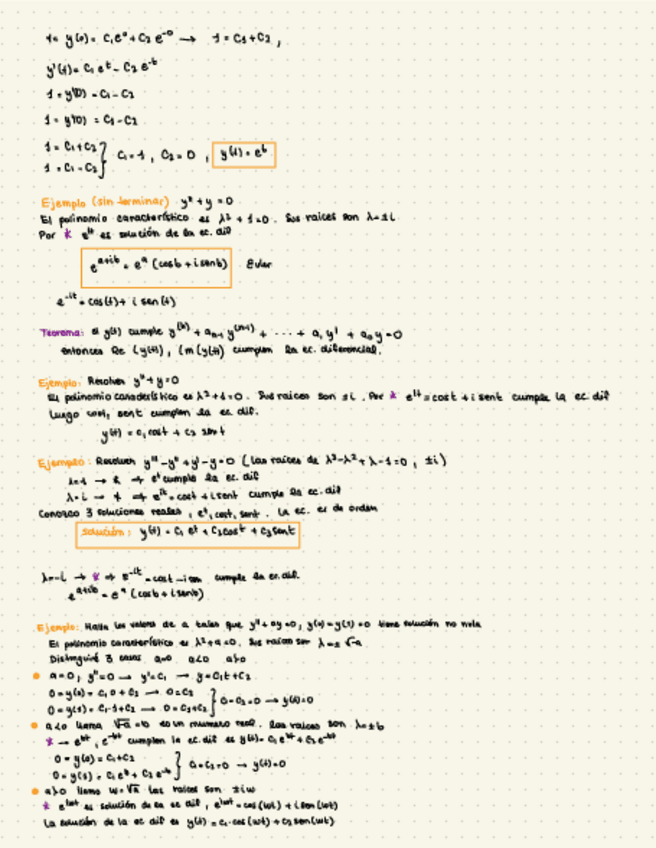 1 = y(0) = C₁e⁰ + C₂e⁻⁰ → 1 = C₁ + C₂,
y'(t) = C₁eᵗ - C₂e⁻ᵗ
1 = y'(0) = C₁ - C₂
1 = y'(0) = C₁ - C₂
1 = C₁ + C₂
1 = C₁ - C₂ } C₁ = 1, C₂ = 0, y(t) = eᵗ
Ejemplo (sin terminar) y'' + y = 0
El polinomio característico es λ² + 1 = 0. Sus raíces son λ = ±i
Por * eⁱᵗ es solución de la ec. dif
e^(a+ib) = eᵃ (cos b + i sen b) Euler
e⁻ⁱᵗ = cos(t) + i sen(t)
Teorema: si y(t) cumple y⁽ⁿ⁾ + aₙ₋₁ y⁽ⁿ⁻¹⁾ + ... + a₁y' + a₀y = 0
entonces Re(y(t)), Im(y(t)) cumplen la ec. diferencial.
Ejemplo: Resolver y'' + y = 0
El polinomio característico es λ² + 1 = 0. Sus raíces son ±i. Por * eⁱᵗ = cos t + i sen t cumple la ec. dif
Luego cos t, sen t cumplen la ec. dif.
y(t) = c₁ cos t + c₂ sen t
Ejemplo: Resolver y''' - y'' + y' - y = 0 (las raíces de λ³ - λ² + λ - 1 = 0, ±i)
λ = 1 → * ⇒ eᵗ cumple la ec. dif
λ = i → * ⇒ eⁱᵗ = cos t + i sen t cumple la ec. dif
Conozco 3 soluciones reales, eᵗ, cos t, sen t. La ec. es de orden
Solución: y(t) = C₁ eᵗ + C₂ cos t + C₃ sen t
λ = -i → * ⇒ e⁻ⁱᵗ = cos t - i sen cumple la ec. dif.
e^(a+ib) = eᵃ (cos b + i sen b)
Ejemplo: Halla los valores de a tales que y'' + ay = 0, y(0) = y(1) = 0 tiene solución no nula
El polinomio característico es λ² + a = 0. Sus raíces son λ = ± √-a
Distinguiré 3 casos a=0 a<0 a>0
• a = 0; y'' = 0 → y' = C₁ → y = C₁t + C₂
0 = y(0) = C₁ 0 + C₂ → 0 = C₂
0 = y(1) = C₁·1 + C₂ → 0 = C₁ + C₂ } C₁ = C₂ = 0 → y(t) = 0
• a<0 llama √-a = b es un numero real. Las raíces son λ = ±b
* → eᵇᵗ, e⁻ᵇᵗ cumplen la ec. dif es y(t) = C₁eᵇᵗ + C₂e⁻ᵇᵗ
0 = y(0) = C₁ + C₂
0 = y(1) = C₁eᵇ + C₂e⁻ᵇ } C₁ = C₂ = 0 → y(t) = 0
• a>0 llamo w = √a las raíces son ±iw
* eⁱʷᵗ es solución de la ec dif, eⁱʷᵗ = cos(wt) + i sen(wt)
La solución de la ec dif es y(t) = C₁·cos(wt) + C₂ sen(wt)